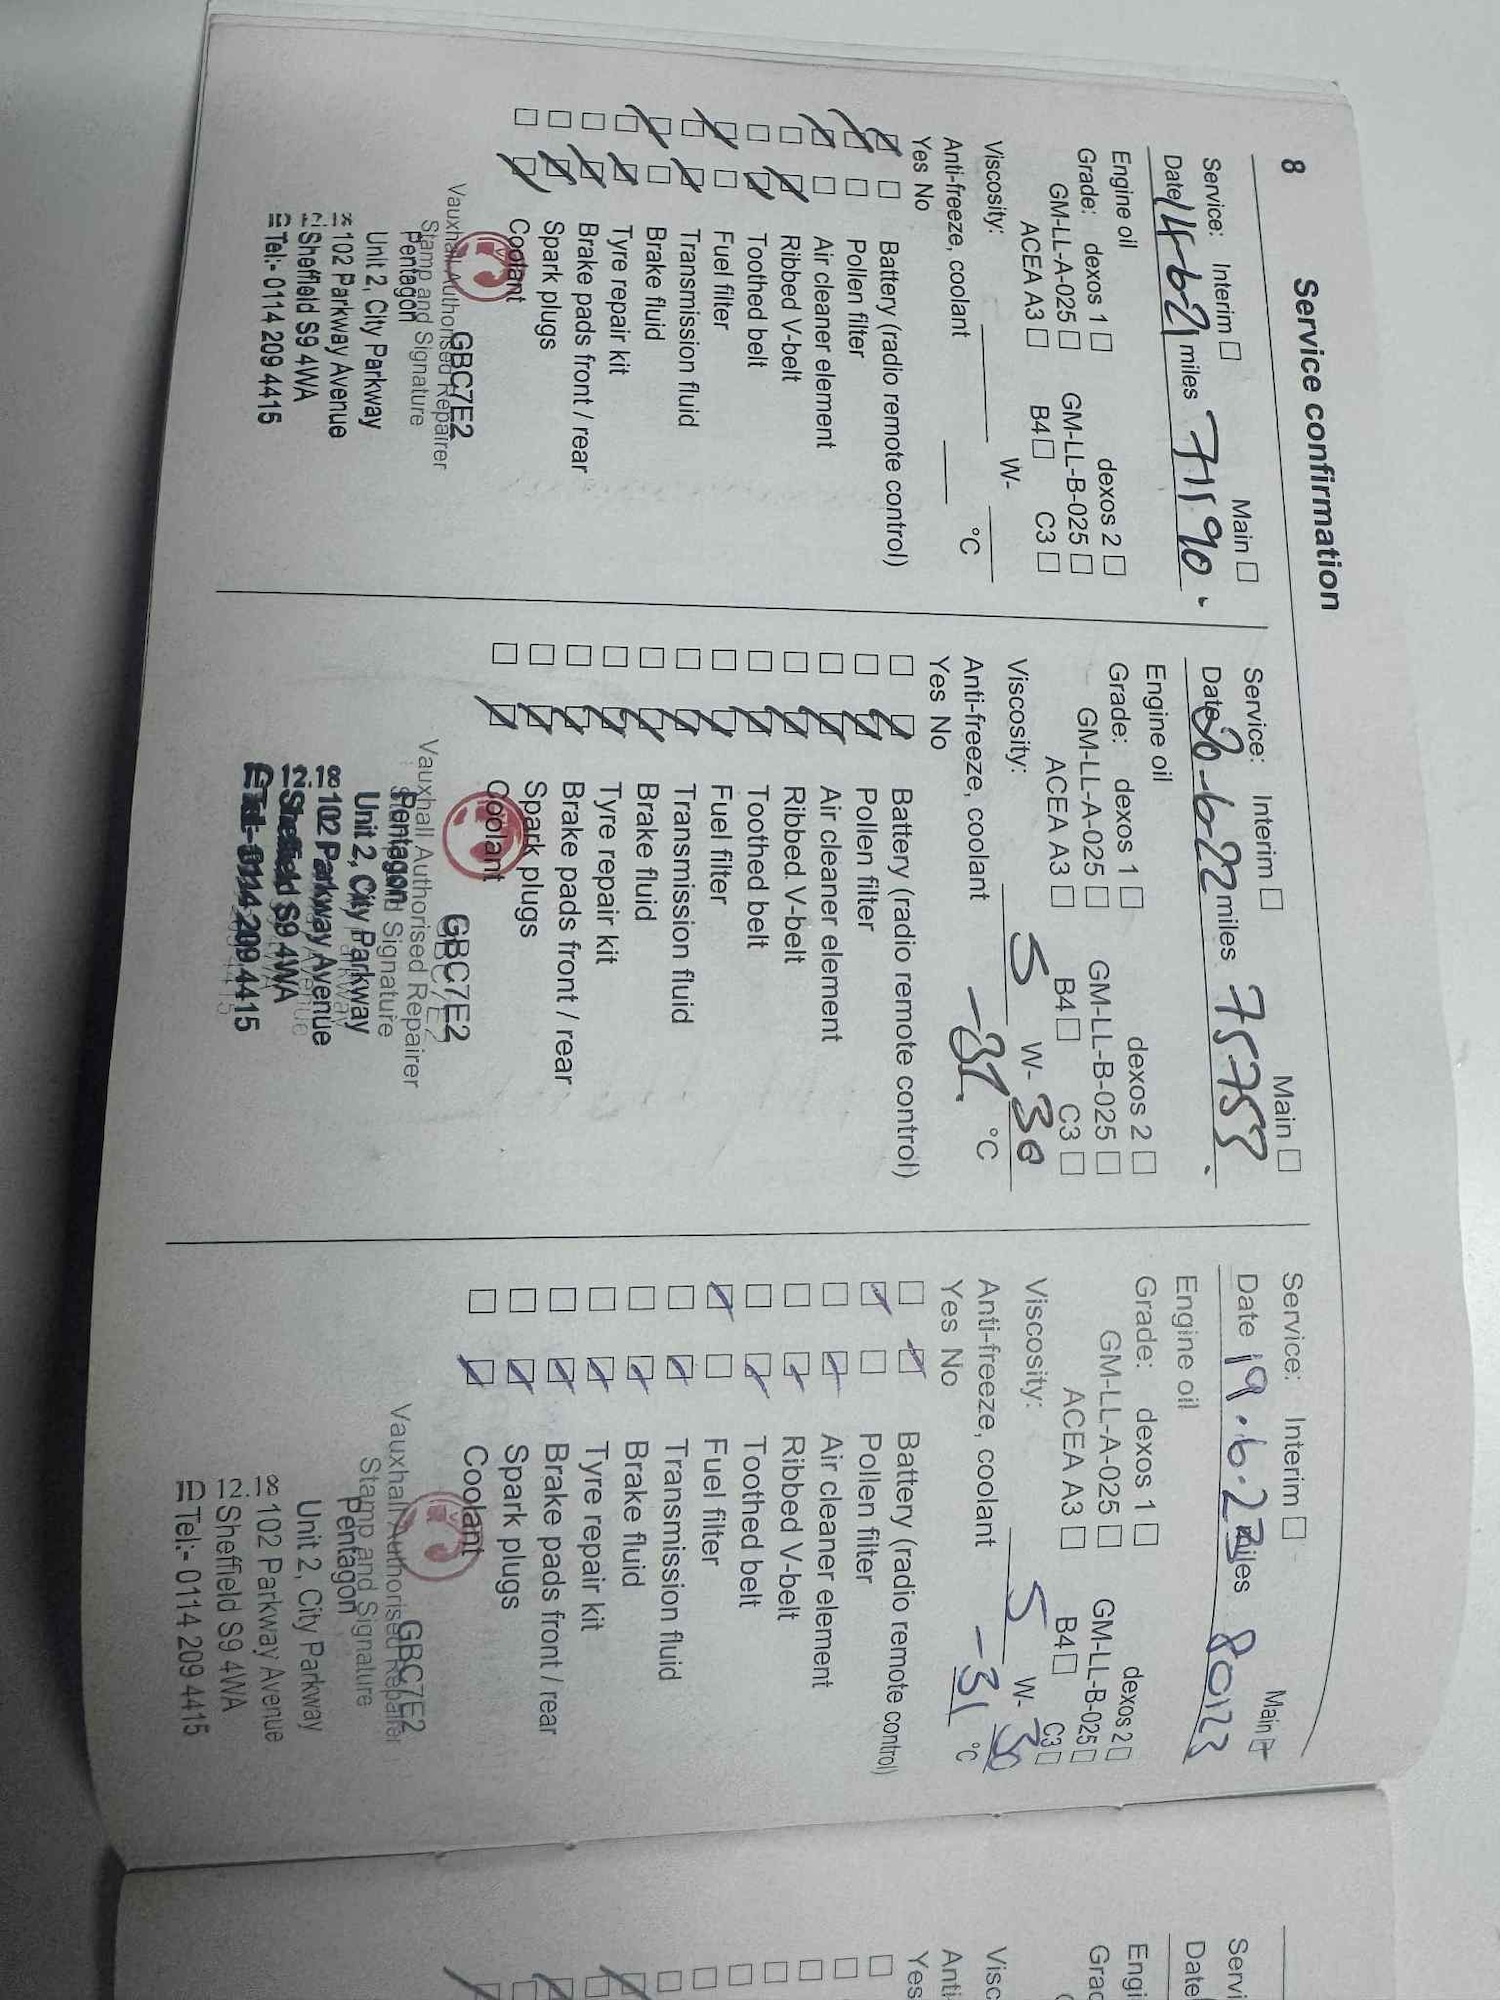 8
Service confirmation
Service: Interim ☐ Main ☐
Date 14-6-21 miles 71190.
Engine oil
Grade: dexos 1 ☐ dexos 2 ☐
GM-LL-A-025 ☐ GM-LL-B-025 ☐
ACEA A3 ☐ B4 ☐ C3 ☐
Viscosity: W-
Anti-freeze, coolant °C
Yes No
Battery (radio remote control)
Pollen filter
Air cleaner element
Ribbed V-belt
Toothed belt
Fuel filter
Transmission fluid
Brake fluid
Tyre repair kit
Brake pads front / rear
Spark plugs
Coolant
GBC7E2
Vauxhall Authorised Repairer
Stamp and Signature
Pentagon
Unit 2, City Parkway
102 Parkway Avenue
Sheffield S9 4WA
Tel:- 0114 209 4415
Service: Interim ☐ Main ☐
Date 20-6-22 miles 75755.
Engine oil
Grade: dexos 1 ☐ dexos 2 ☐
GM-LL-A-025 ☐ GM-LL-B-025 ☐
ACEA A3 ☐ B4 ☐ C3 ☐
Viscosity: 5 W- 30
Anti-freeze, coolant °C
Yes No
Battery (radio remote control)
Pollen filter
Air cleaner element
Ribbed V-belt
Toothed belt
Fuel filter
Transmission fluid
Brake fluid
Tyre repair kit
Brake pads front / rear
Spark plugs
Coolant
GBC7E2
Vauxhall Authorised Repairer
Signature
Pentagon
Unit 2, City Parkway
102 Parkway Avenue
Sheffield S9 4WA
0114 209 4415
Service: Interim ☐ Main ☑
Date 19.6.23 miles 80123
Engine oil
Grade: dexos 1 ☐ dexos 2 ☐
GM-LL-A-025 ☐ GM-LL-B-025 ☐
ACEA A3 ☐ B4 ☐ C3 ☐
Viscosity: 5 W- 30
Anti-freeze, coolant -31 °C
Yes No
Battery (radio remote control)
Pollen filter
Air cleaner element
Ribbed V-belt
Toothed belt
Fuel filter
Transmission fluid
Brake fluid
Tyre repair kit
Brake pads front / rear
Spark plugs
Coolant
GBC7E2
Vauxhall Authorised Repairer
Stamp and Signature
Pentagon
Unit 2, City Parkway
102 Parkway Avenue
Sheffield S9 4WA
Tel:- 0114 209 4415
Servi
Date
Engi
Grad
Visc
Anti
Yes